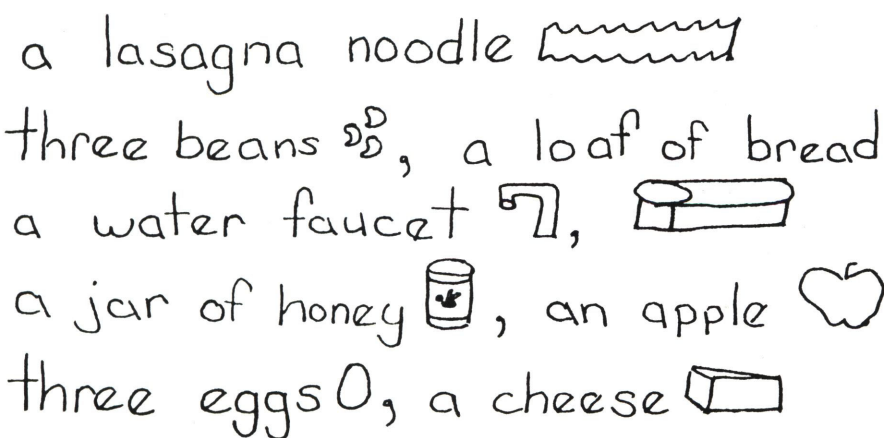 a lasagna noodle
three beans, a loaf of bread
a water faucet,
a jar of honey, an apple
three eggs, a cheese